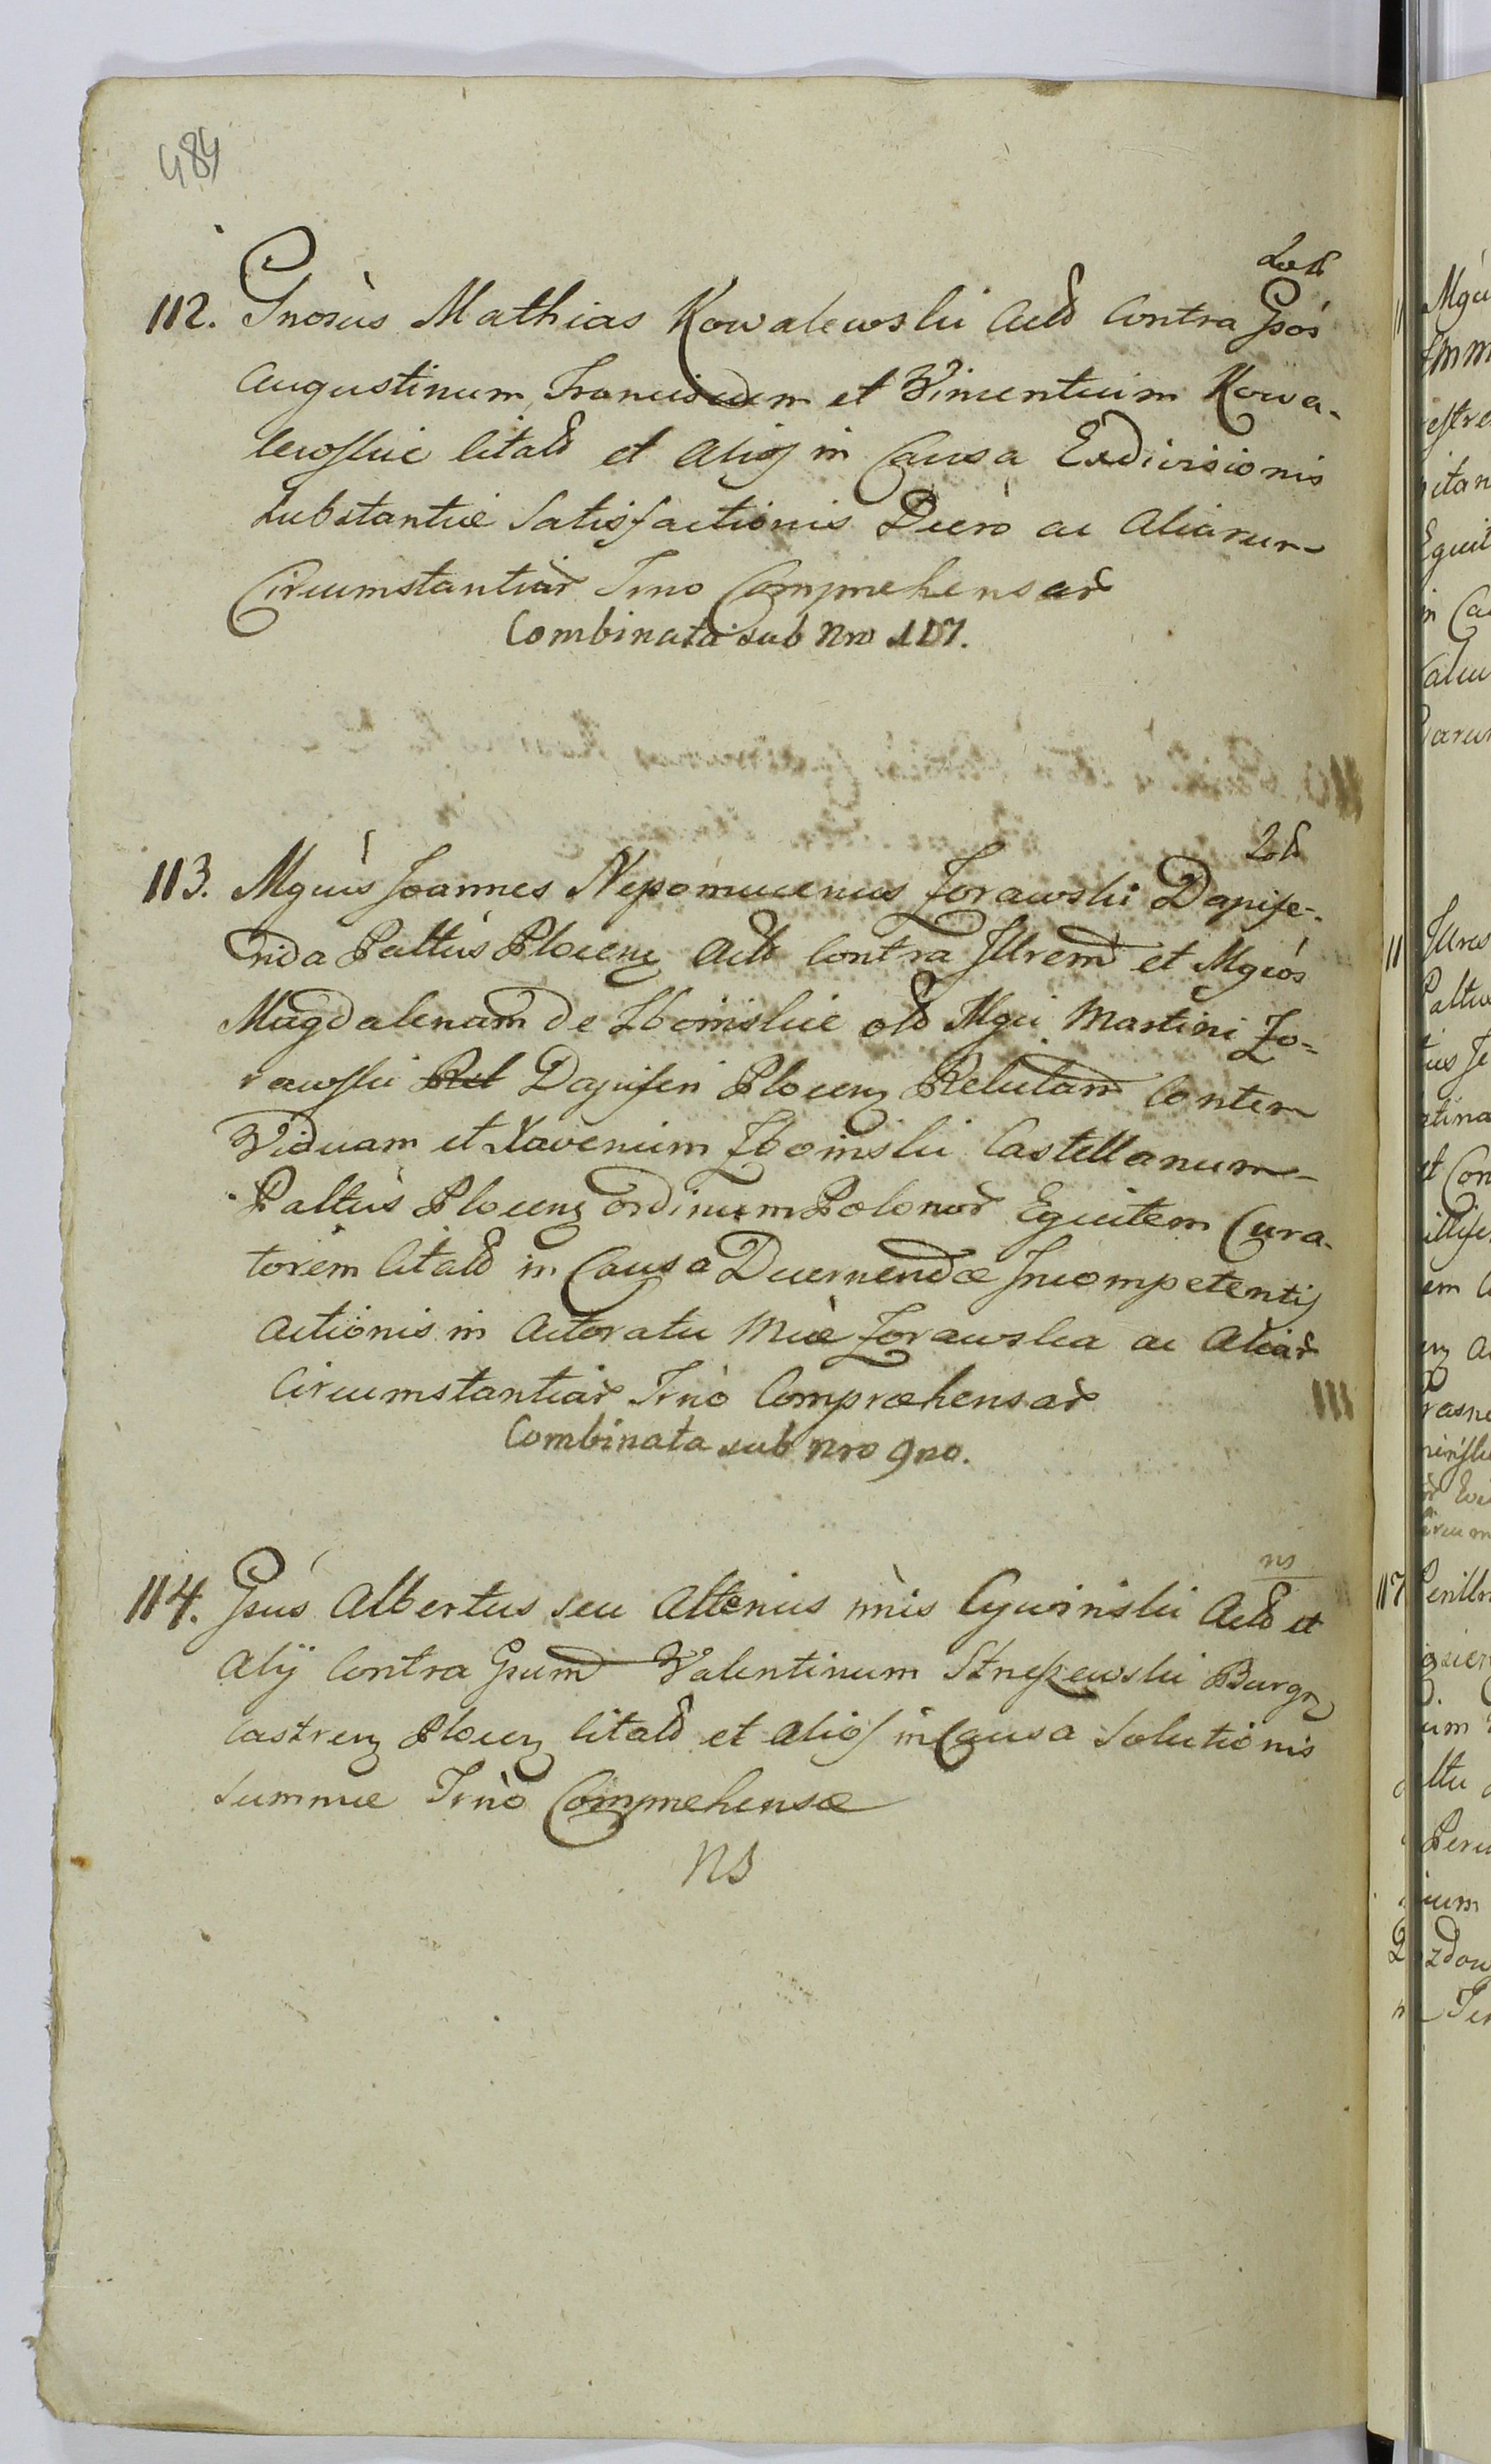 484
112. Gnosùs Mathias Kowalewski Actõ Contra Gsòs
Augustinum, Franciscum et Vincentium Kowa-
lewskie Citatõ et Alios in Causa Exdivisionis
Substantiæ Satisfactionis Decrò ac Aliarum
Circumstantiar̃ Trno Comprehensar̃
Combinata sub Nro 107.
113. Mgùs Joannes Nepomucenus Zorawski Dapife-
rida Pałtùs Plocenz Actõ Contra Jllrem̃ et Mgcòs
Magdalenam̃ de Zboinskie olõ Mgci Martini Zo=
rawski Rel Dapiferi Plocenz Relictam̃ Contem
Viduam et Xaverium Zboinski Castellanum
Paltùs Plocenz Ordinum Polonor̃ Equitem Cura-
torem Citatõ in Causa Decernendæ Incompetentis
Actionis in Actoratu Mcæ Zorawska ac Aliar̃
Circumstantiar̃ Trnò Compræhensar̃
Combinata sub Nro 9no.
ns
114. Gsùs Albertus seu alterius nnìs Cywinski Actõ et
Alij Contra Gsum̃ Valentinum Strzeszewski Burgr
Castrenz Plocenz Citatõ et Alios in Causa Solutionis
Summæ Trnò Comprehensæ
ns